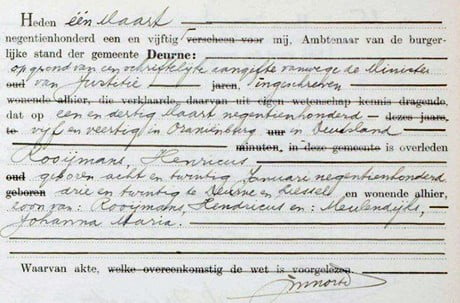 Heden één Maart
negentienhonderd een en vijftig verscheen voor mij, Ambtenaar van de burger-
lijke stand der gemeente Deurne:
op grond van een schriftelijke aangifte vanwege de Minister
oud van Justitie jaren, ingeschreven
wonende alhier, die verklaarde daarvan uit eigen wetenschap kennis dragende,
dat op een en dertig Maart negentienhonderd dezes jaars,
te vijf en veertig in Oranienburg uur in Duitsland
minuten, in deze gemeente is overleden
Rooijmans, Henricus
oud geboren acht en twintig Januari negentienhonderd
geboren drie en twintig te Deurne en Liessel en wonende alhier,
zoon van: Rooijmans, Hendricus en: Meulendijks,
Johanna Maria.
Waarvan akte, welke overeenkomstig de wet is voorgelezen.